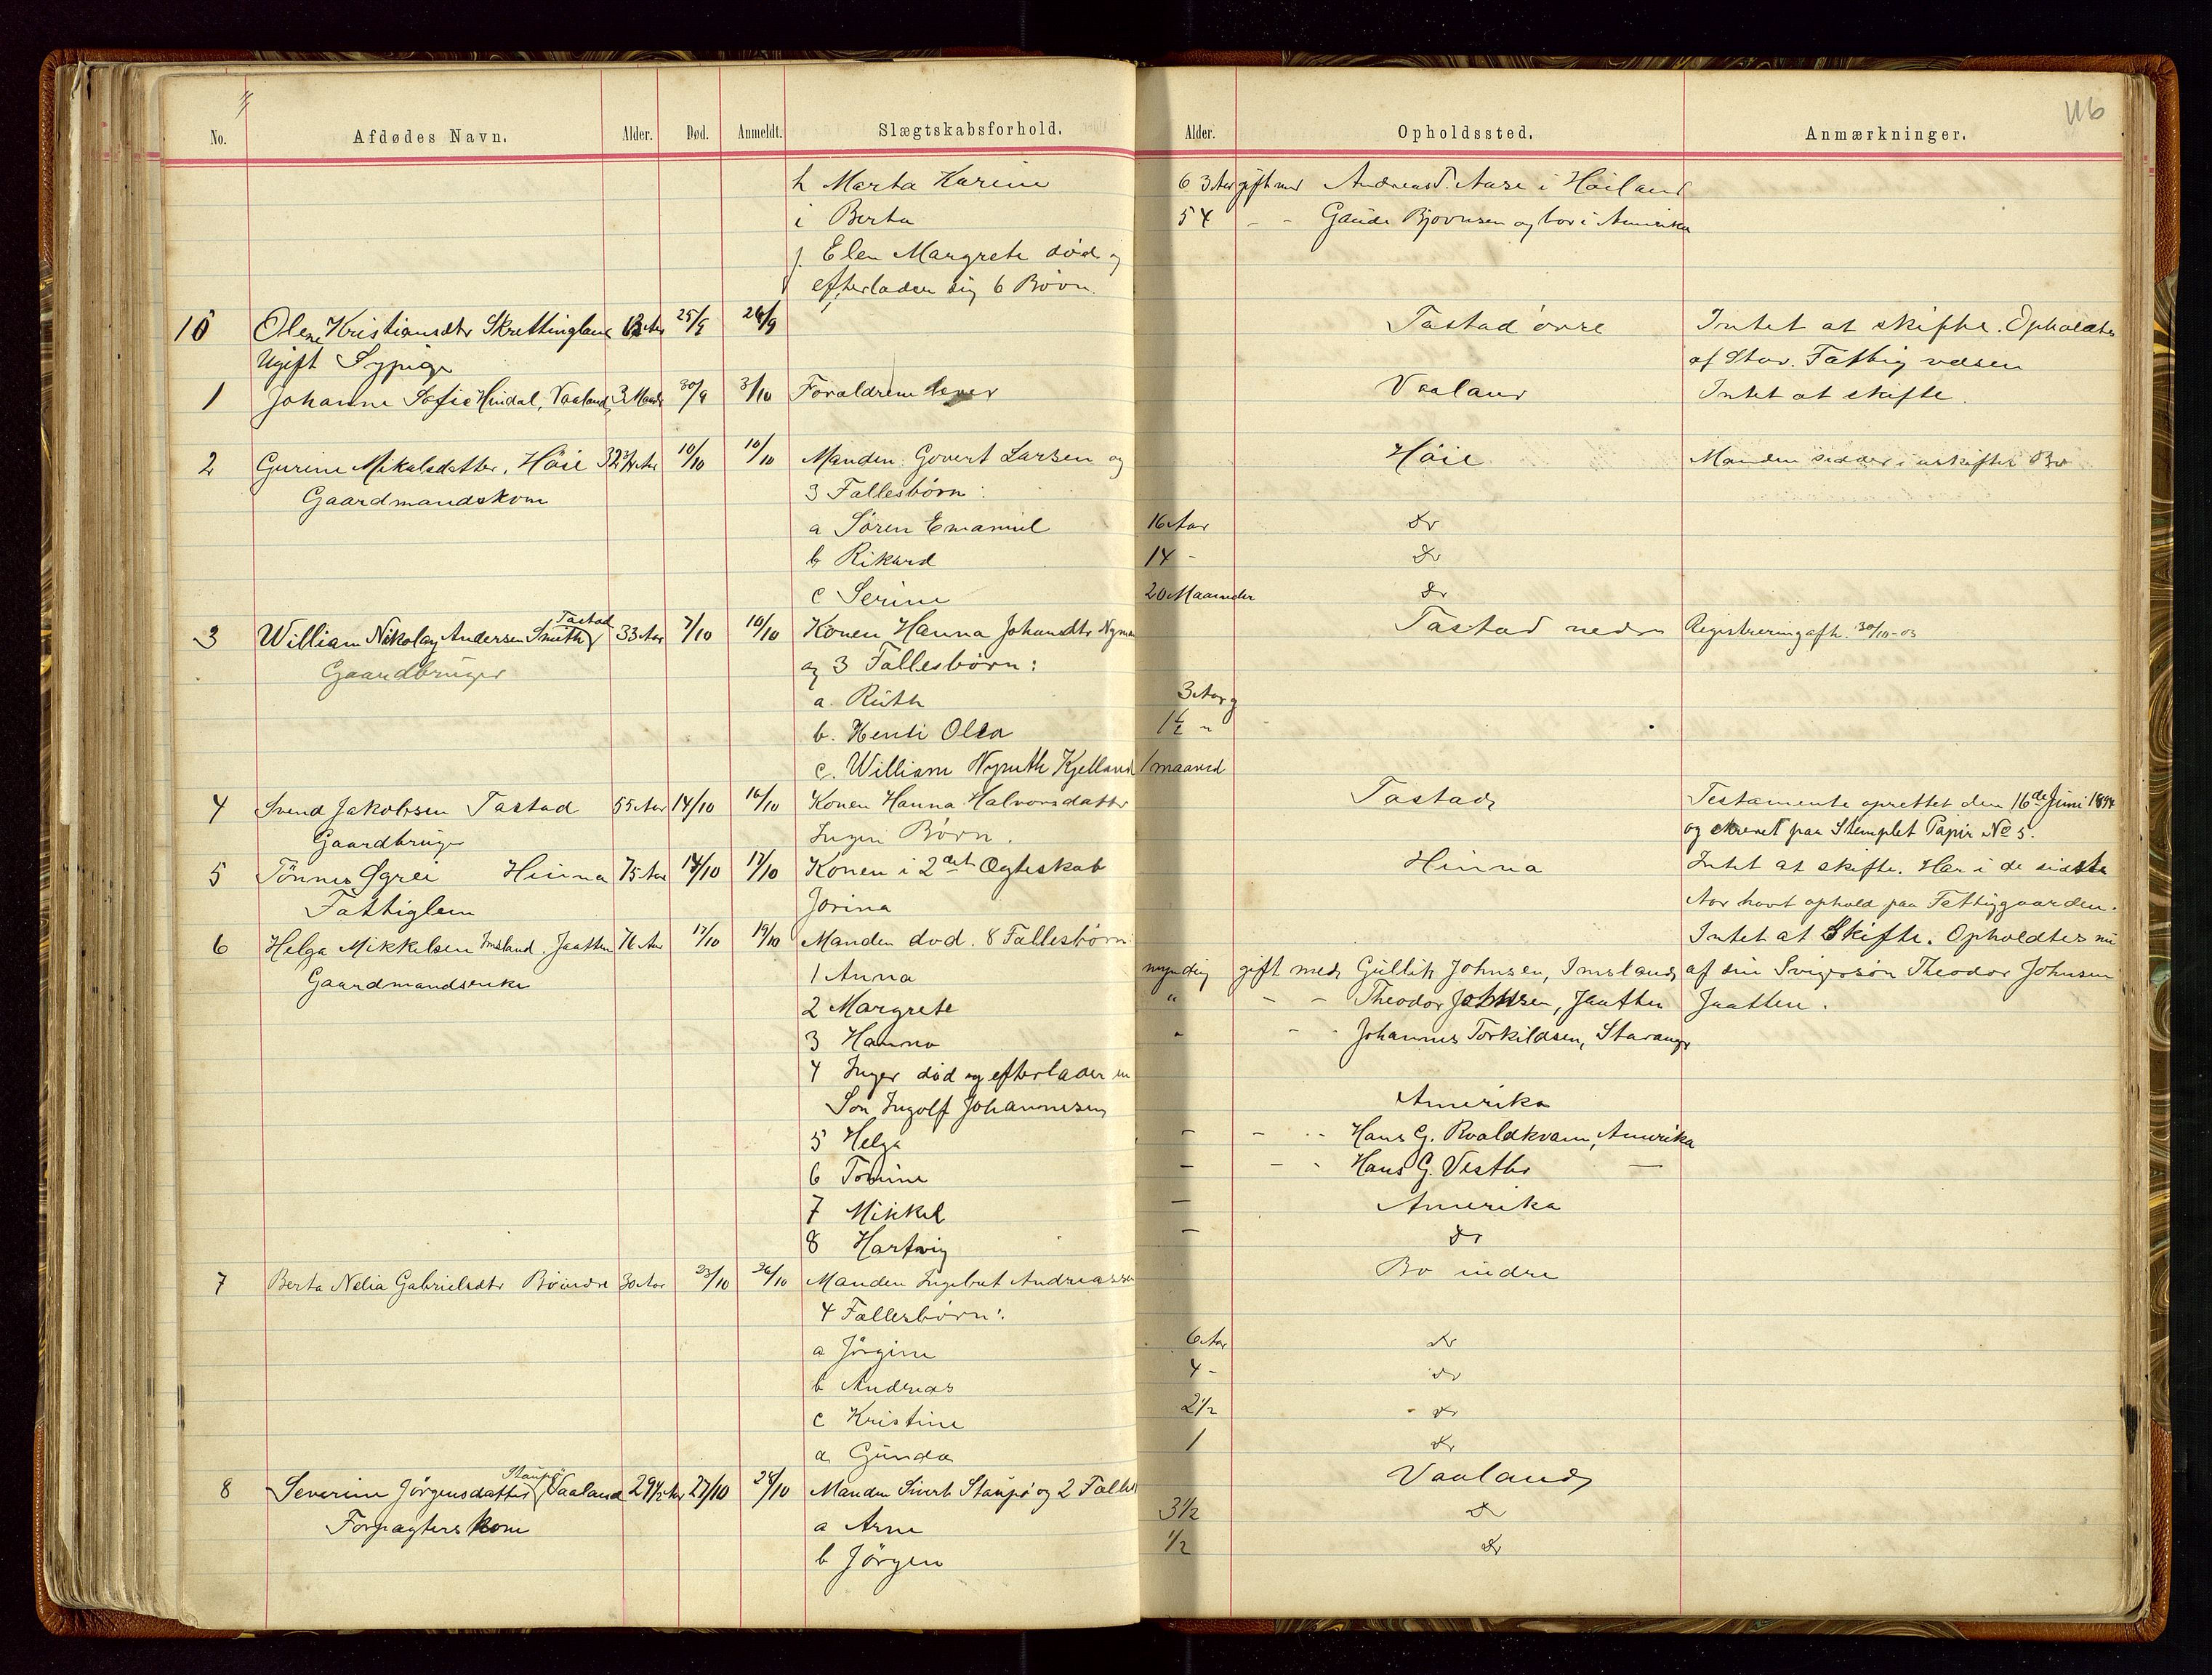 116
No. Afdødes Navn. Alder. Død. Anmeldt. Slægtskabsforhold. Alder. Opholdssted. Anmærkninger.
h Marta Karine 63 Aar gift med Andreas T. Aase i Höiland
i Berta 54 - - Gaude Bjørnsen og bor i Amerika
j. Elen Margrete død og
efterlader sig 6 Børn.
10 Olene Kristiansdtr Skrettingland Aar 25/9 26/9 Tastad øvre Intet at skifte. Opholdtes
Ugift Sypige af Stav. Fattigvæsen
1 Johanne Sofie Hindal, Vaaland 3 Maad 30/9 3/10 Forældrene lever Vaaland Intet at skifte.
2 Gurine Mikalsdatter, Höie 32 Aar 10/10 10/10 Manden Govert Larsen og Höie Manden sidder i uskiftet Bo
Gaardmandskone 3 Fællesbörn:
a Sören Emanuel 16 Aar Do
b Rikard 14 - Do
c Serine 20 Maaneder Do
3 William Nikolay Andersen Smith Tastad 33 Aar 7/10 10/10 Konen Hanna Johansdtr Nyman Tastad nedre Registreringsafh. 30/10-03
Gaardbruger og 3 Fællesbørn:
a. Ruth 3 Aar
b. Henti Olea 1 1/2 "
c. William Kjelland 1 maaned
4 Svend Jakobsen Tastad 55 Aar 14/10 16/10 Konen Hanna Halvorsdatter Tastad Testamente oprettet den 16de Juni 1894
Gaardbruger Ingen Børn. og skrevet paa Stemplet Papir No 5.
5 Tönnes Øgrei Hinna 75 Aar 14/10 17/10 Konen i 2det Ægteskab Hinna Intet at skifte. Har i de sidste
Fattiglem Jorina Aar havt ophold paa Fattiggaarden.
6 Helga Mikkelsen Imsland. Jaatten 76 Aar 17/10 19/10 Manden død. 8 Fællesbörn Intet at Skifte. Opholdtes nu
Gaardmandsenke 1 Anna myndig gift med Gullik Johnsen, Imsland af sin Svigersön Theodor Johnsen
2 Margrete " - - Theodor Johnsen, Jaatten Jaatten.
3 Hanna " - - Johannes Torkildsen, Stavanger
4 Inger död og efterlader en
Son Ingolf Johannesen Amerika
5 Helga - - - Hans G. Roaldkvam, Amerika
6 Tomine - - - Hans G. Vestbø -
7 Mikkel - Amerika
8 Hartvig - Do
7 Berta Nelia Gabrielsdtr Bö indre 30 Aar 23/10 26/10 Manden Ingebret Andreassen Bo indre
4 Fællesbörn:
a Jörgine 6 Aar Do
b Andreas 4 - Do
c Kristine 2 1/2 Do
d Gunda 1 Do
8 Severine Jörgensdatter Staupø Vaaland 29 1/2 Aar 27/10 28/10 Manden Sivert Staupø og 2 Fælles Vaaland
Forpagterskone a Arne 3 1/2 Do
b Jörgen 1/2 Do